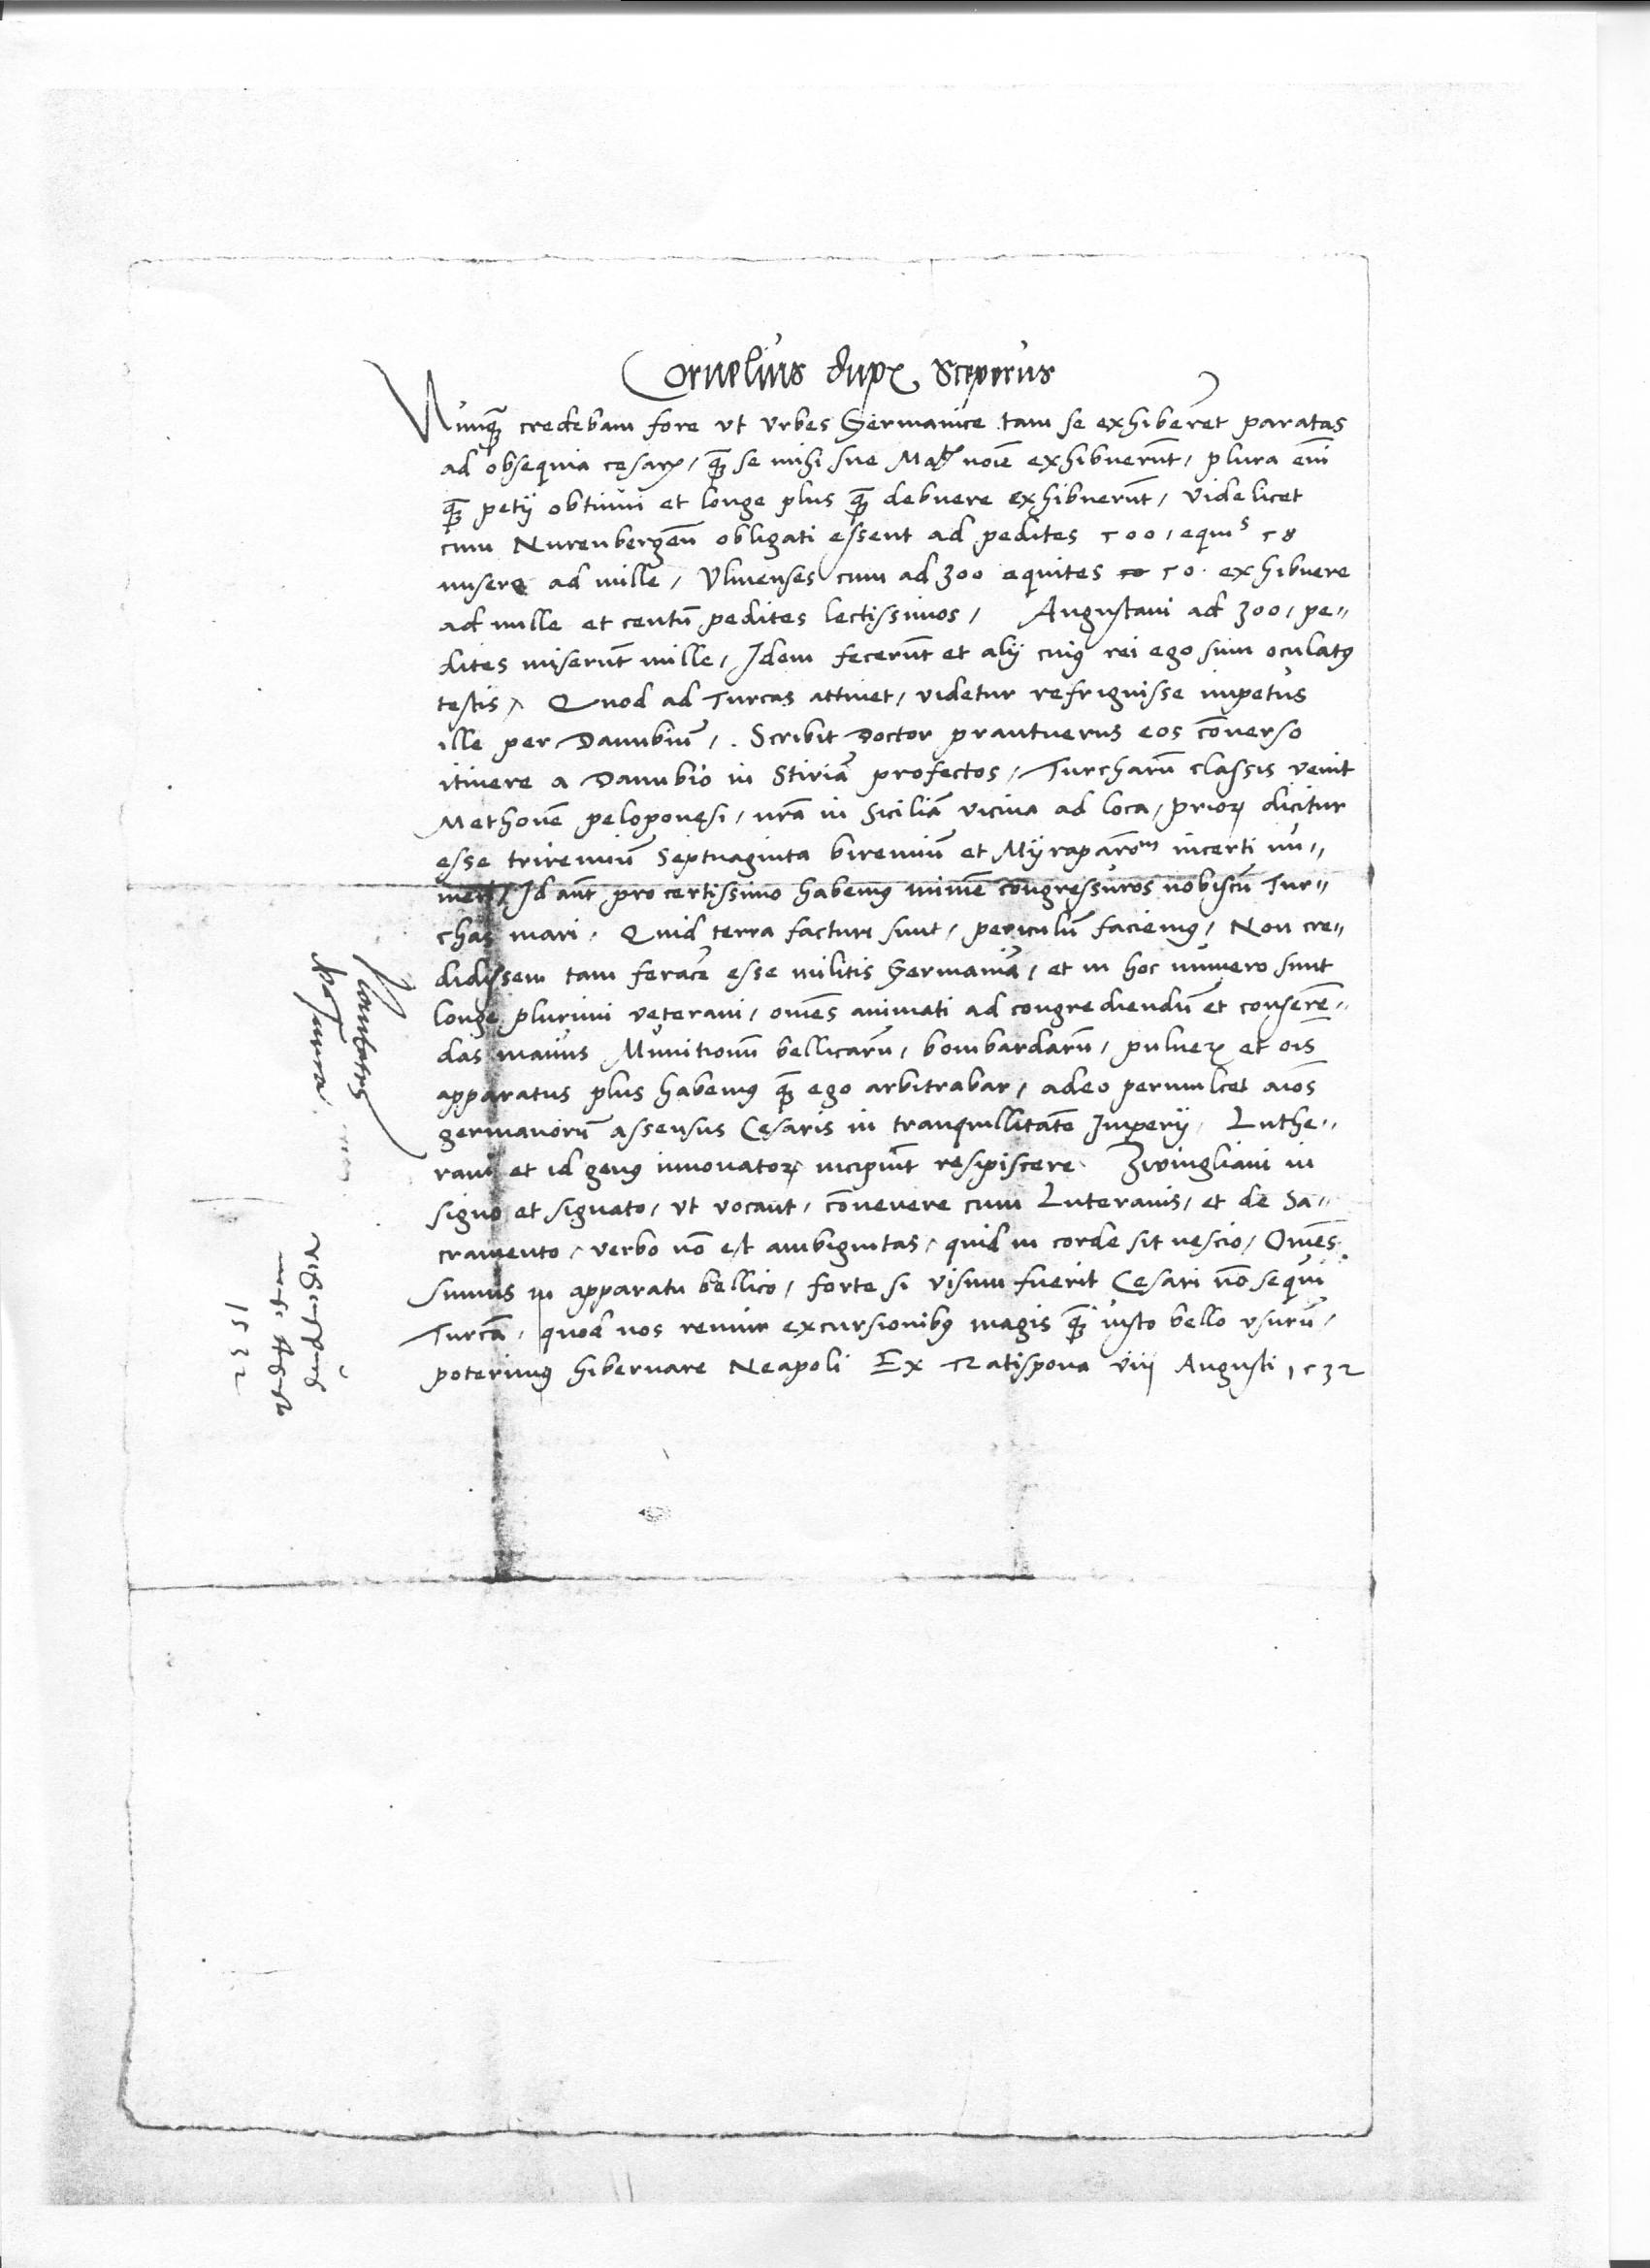 Cornelius dupx Sceperus
Nunq̃ credebam fore vt vrbes Germanice tam se exhiberet paratas
ad obsequia cęsarꝭ, q̃ se mihi sue Maᵗⁱˢ noīe exhibuerūt, plura em̄
q̃ petij obtinui et longe plus q̃ debuere exhibuerūt, videlicet
cum Nurenbergeñ obligati essent ad pedites 500, equiᵗˢ 58
misere ad mille, Vlmenses cum ad 300 equites 50. exhibuere
ad mille et centū pedites lectissimos, Augustani ad 300, pe-
dites miserūt mille, Idem fecerūt et alij cuiꝰ rei ego sum oculatꝰ
testis, Quod ad Turcas attinet, videtur refriguisse impetus
ille per Danubiū, . Scribit Doctor prantnerus eos cōuerso
itinere a Danubio in Stiriā profectos, Turcharū classis venit
Methonē peloponęsi, nr̄a in Siciliā vicina ad loca, prioꝝ dicitur
esse triremiū septuaginta biremiū et Myraparōⁿᵘᵐ incerti nu-
meri, Id aūt pro certissimo habemꝰ minīe congressuros nobiscū Tur-
chas mari. Quid terra facturi sunt, periculū faciemꝰ, Non cre-
didissem tam feracē esse militis Germaniā, et in hoc numero sunt
longe plurimi veterani, om̄es animati ad congrediendū et conserēn-
das manus Munitionū bellicarū, bombardarū, pulueꝝ et oīs
apparatus plus habemꝰ q̃ ego arbitrabar, adeo permulcet aīos
germanorū assensus Cęsaris in tranquillitatē Imperij. Luthe-
rani et id genꝰ innouatoꝝ incipiūt resipiscere. Zwingliani in
signo et signato, vt vocant, cōuenere cum Luteranis, et de Sa-
cramento, verbo nō est ambiguitas, quid in corde sit nescio, Om̄es
sumus in apparatu bellico, forte si visum fuerit Cęsari nō sequi
Turcā, quod nos remur excursionibꝰ magis q̃ iusto bello vsurū,
poterimꝰ hibernare Neapoli Ex Ratispona viij Augusti 1532
1532